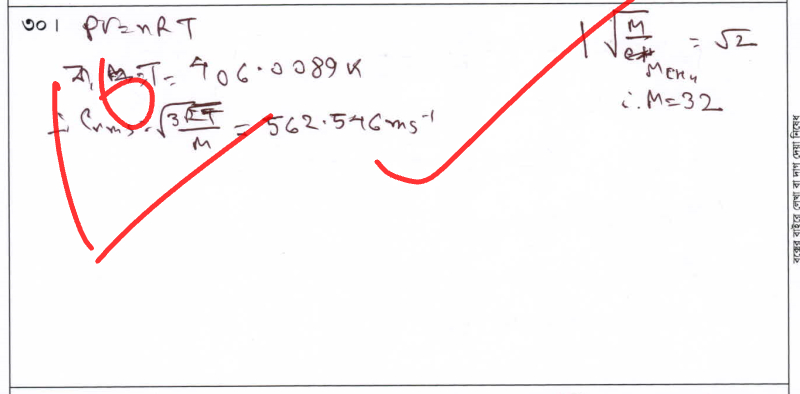 ৩০। PV=nRT
বা, T= 406.0089 K
∴ Crms = √3RT/M = 562.546 ms⁻¹
√M/M CH4 = √2
∴ M=32
বক্সের বাইরে লেখা বা দাগ দেয়া নিষেধ